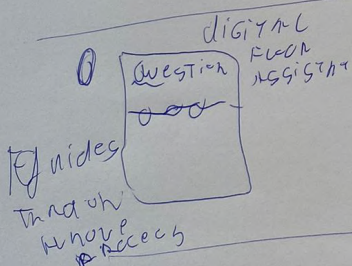 digital
Floor
Assistant
Question
Guides
through
remove
Access